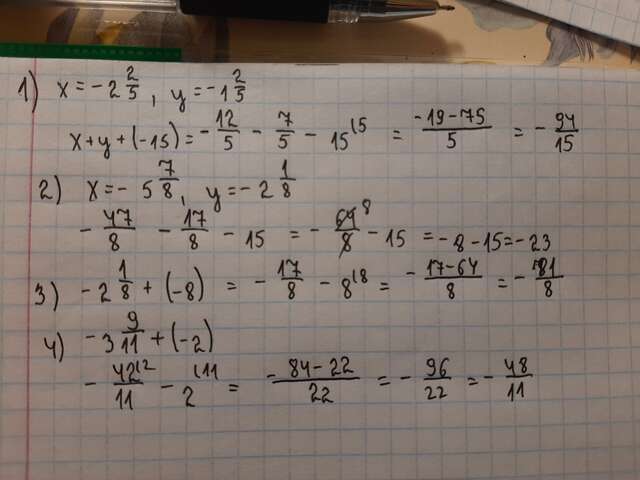 1) x = -2 2/5, y = -1 2/5
x+y+(-15) = -12/5 - 7/5 - 15^(5 = (-19-75)/5 = -94/15
2) x = -5 7/8, y = -2 1/8
-47/8 -17/8 - 15 = -64^8/8 - 15 = -8-15=-23
3) -2 1/8 + (-8) = -17/8 - 8^(8 = (-17-64)/8 = -81/8
4) -3 9/11 + (-2)
-42^(2/11 - 2^(11 = (-84-22)/22 = -96/22 = -48/11